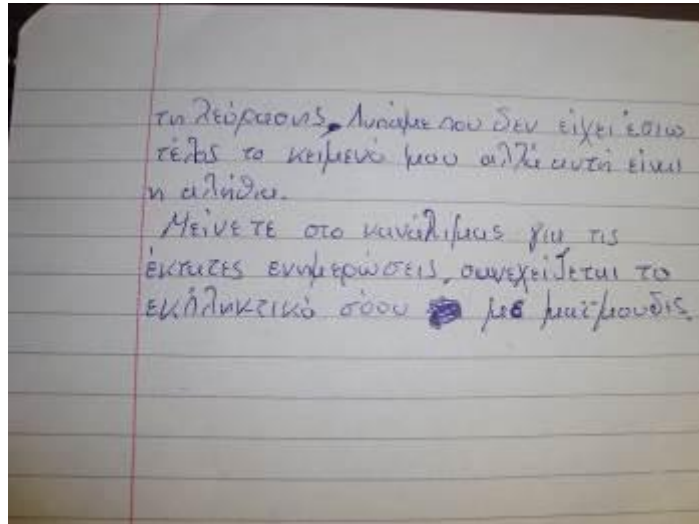 τηλεόρασης. Λυπάμε που δεν είχει έσιω
τέλος το κείμενό μου αλλά αυτή είναι
η αλήθια.
Μείνετε στο κανάλιμας για τις
έκτατες ενημερώσεις, συνεχείζεται το
εκπληκτικό σόου με μαϊμουδις.